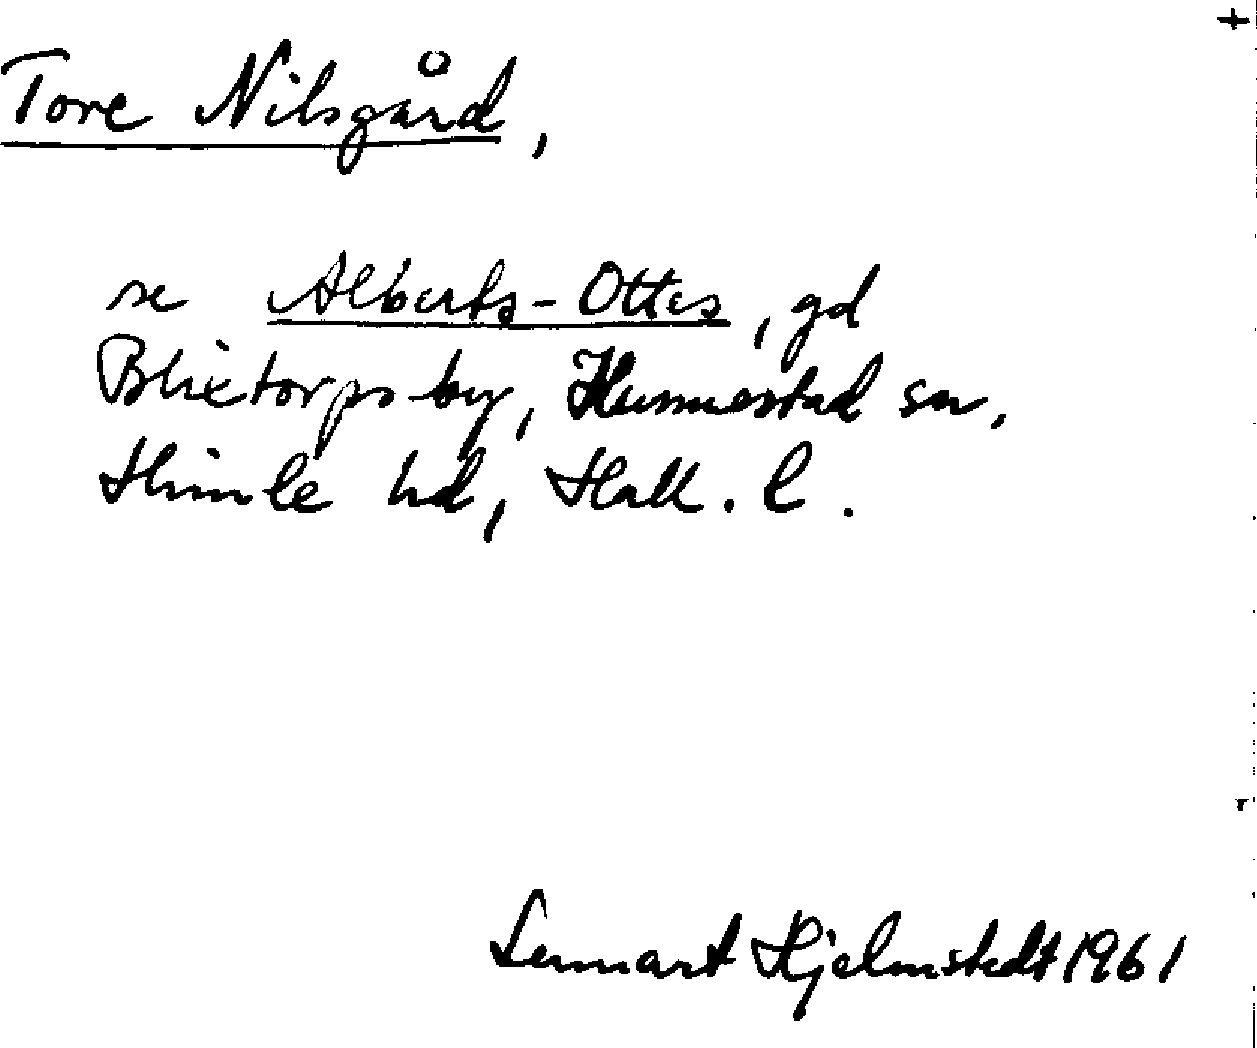 Tore Nilsgård,
se Alberts-Ottes, gd
Blixtorps by, Hunnestad sn,
Himle hd, Hall. l.
Lennart Hjelmstedt 1961